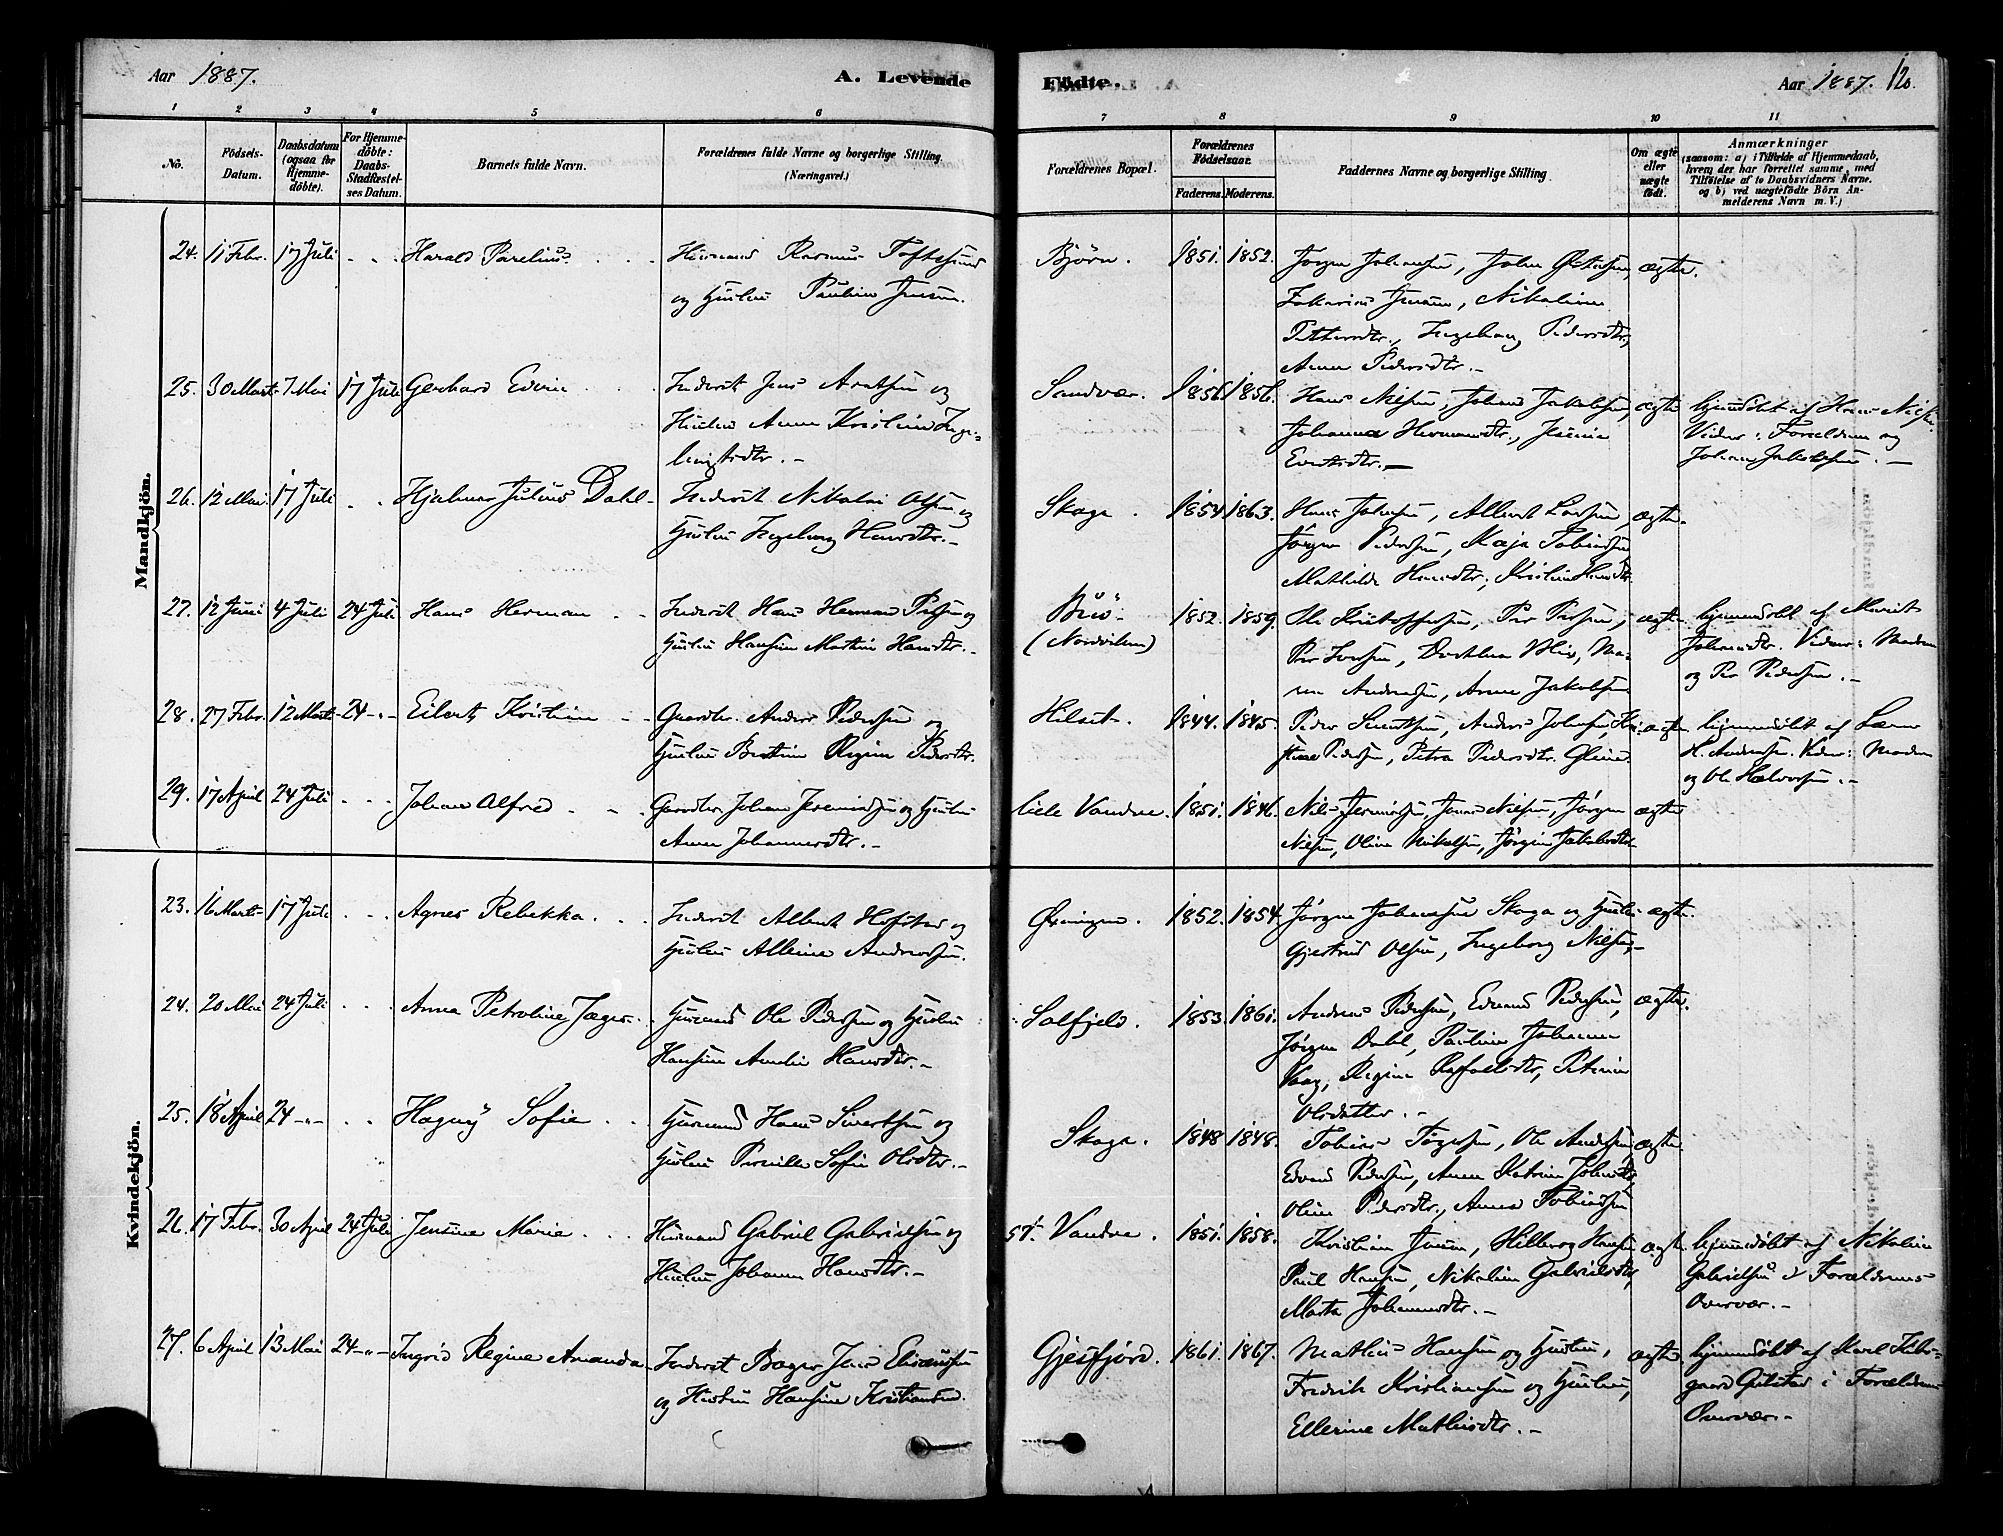 Aar 1887.
A. Levende
Födte.
Aar 1887. 120.
1 2 3 4 5 6 7 8 9 10 11
No.
Födsels-Datum.
Daabsdatum (ogsaa för Hjemme-döbte).
For Hjemme-döbte: Daabs-Stadfæstel-ses Datum.
Barnets fulde Navn.
Forældrenes fulde Navne og borgerlige Stilling.
(Næringsvei.)
Forældrenes Bopæl.
Forældrenes Födselsaar.
Faderens. Moderens.
Faddernes Navne og borgerlige Stilling
Om ægte eller uægte födt.
Anmærkninger
(saasom: a) i Tilfælde af Hjemmedaab,
hvem der har forrettet samme, med
Tilföielse af to Daabsvidners Navne.
og b) ved uægtefödte Börn An-
melderens Navn m. V.)
Mandkjön.
24. 11 Febr. 17 Juli Harald Parelius. Husmand Rasmus Toftesund
og Hustru Pauline Jensen.
Björn. 1851. 1852. Jörgen Johansen, Johan
Zakarias Jensen, Nikoline
Pettersdtr., Ingeborg Pedersdtr.,
Anne Pedersdtr.
ægte.
25. 30 Marts 7 Mai 17 Juli Gerhard Edvin Inderst. Jens og
Hustru Anne Kristine Inge-
brigtsdtr.
Sandvær. 1856 1856. Hans Nilsen, Johan Jakobsen,
Johanna Hermansdtr., Jesenia
Evertsdtr.
ægte hjemmedöbt af Hans Nilsen.
Vidner: Forældrene og
Johan Jakobsen.
26. 12 Mai 17 Juli Hjalmar Julius Dahl Inderst Nikolai Olsen og
Hustru Ingeborg Hansdtr.
Skaga. 1854 1863. Hans Johnsen, Albert Larsen,
Jörgen Pedersen, Kaja Tobiassen
Mathilde Hansdtr., Kristine Hansdtr.
ægte.
27. 12 Juni 4 Juli 24 Juli Hans Herman Inderst Hans Herman og
Hustru Hansine Martine Hansdtr.
(Nordviken) 1852. 1859. Ole Kristoffersen, Per
Per Iversen, Dorthea Ma-
ren Andreassen, Anne Jakobsen
ægte hjemmedöbt af Marit
Johansdtr. Vidner: Moderen
og Per Pedersen.
28. 27 Febr. 12 Marts 24 -"- Eilert Kristian Gaardbr. Anders Pedersen og
Hustru Regine Pedersdtr.
Hilset. 1844. 1845. Peder Anders Johnsen, Kri-
stine Pedersen, Petra Pedersdtr.
ægte hjemmedöbt af
H. Andersen. Vidner: Moderen
og Ole Halvorsen.
29. 17 April 24 Juli Johan Alfred Gaardbr. Johan Jeremiassen og Hustru
Anne Johannesdtr.
lille Vandve. 1851. 1846. Nils Jeremiassen, Jens Nilsen, Jörgen
Nilsen, Oline Jörgine Jakobsdtr.
ægte
Kvindekjön.
23. 16 Marts 17 Juli Agnes Rebekka. Inderst Albert og
Hustru Alleine Andreassen.
Öxningen. 1852. 1854. Jörgen Johansen Skaga og Hustru
Gjertrud Olsen, Ingeborg Nilsen,
ægte.
24. 20 Mai 24 Juli Anna Petroline Jæger. Husmand Ole Pedersen og Hustru
Hansine Amalie Hansdtr.
Solfjeld. 1853. 1861. Andreas Pedersen, Edvard Pedersen,
Jörgen Dahl, Pauline Johanna
Vaag, Regine Rafaelsdtr., Petrine
Olsdatter.
ægte.
25. 18 April 24 -"- Hagny Sofie Husmand Hans Sivertsen og
Hustru Pernille Sofie Olsdtr.
Skaga. 1848 1848. Tobias Tögersen, Ole Andersen
Edvard Pedersen, Anne Katrine Johnsdtr.
Oline Pedersdtr., Anna Tobiassen
ægte
26. 17 Febr. 30 April 24 Juli Jensine Marie Husmand Gabriel Gabrielsen og
Hustru Johanna Hansdtr.
st. Vandve. 1851. 1858. Kristian Jensen, Hilberg Hansen
Paul Hansen, Nikoline Gabrielsdtr.
Marta Johannesdtr.
ægte. hjemmedöbt af Nikoline
Gabrielsen i Forældrenes
Overvær.
27. 6 April 13 Mai 24 -"- Ingrid Regine Amanda Inderst Bager Jens Eliassen
og Hustru Hansine Kristiansen.
Gjesfjord. 1861. 1867. Mathias Hansen og Hustru,
Fredrik Kristiansen og Hustru,
Ellerine Mathiasdtr.
ægte hjemmedöbt af Karl Fals-
gaard i Forældrenes
Overvær.